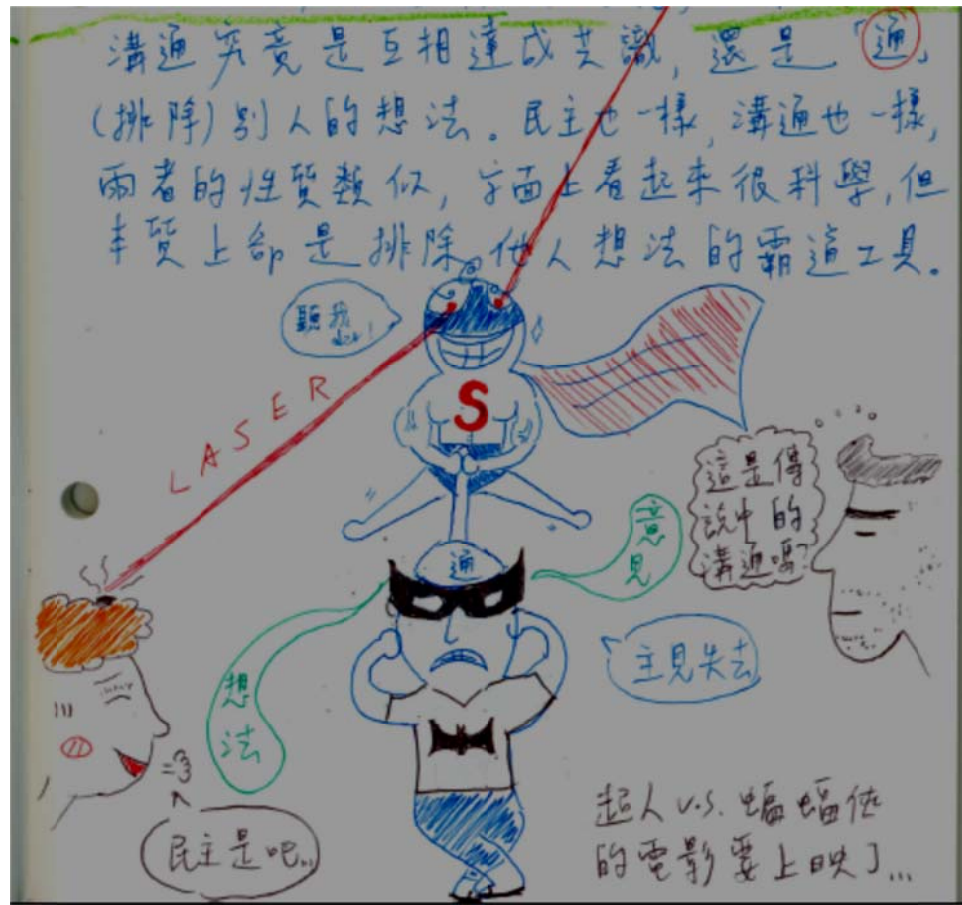 溝通究竟是互相達成共識,還是「通」
(排除)別人的想法。民主也一樣,溝通也一樣,
兩者的性質類似,字面上看起來很科學,但
本質上都是排除他人想法的霸道工具。
聽我
LASER
S
這是傳
說中的
溝通嗎?
通
意見
想法
主見失去
民主是吧...
超人 v.s. 蝙蝠俠
的電影要上映了...